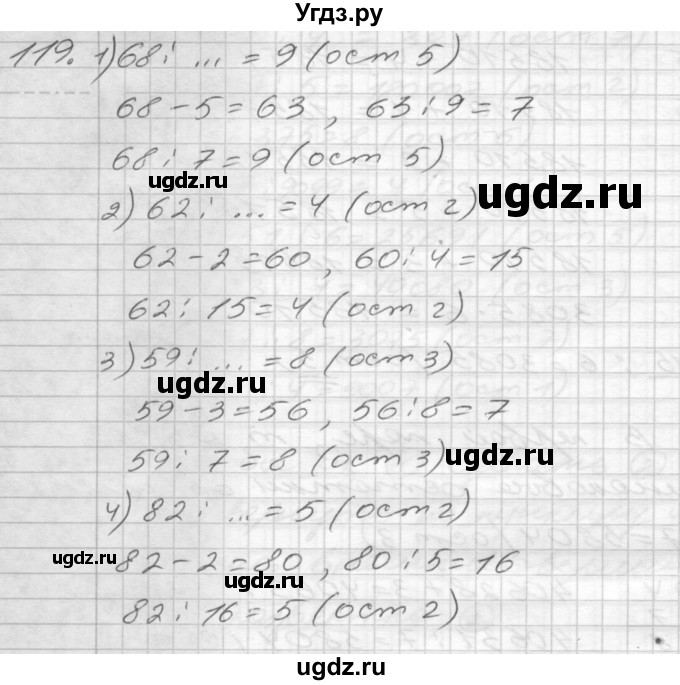 Угдз.ру
119. 1) 68 : ... = 9 (ост 5)
68 - 5 = 63 , 63 : 9 = 7
68 : 7 = 9 (ост 5)
ugdz.ru
ugdz.ru
2) 62 : ... = 4 (ост 2)
62 - 2 = 60 , 60 : 4 = 15
62 : 15 = 4 (ост 2)
3) 59 : ... = 8 (ост 3)
ugdz.ru
59 - 3 = 56 , 56 : 8 = 7
59 : 7 = 8 (ост 3)
ugdz.ru
4) 82 : ... = 5 (ост 2)
ugdz.ru
82 - 2 = 80 , 80 : 5 = 16
ugdz.ru
82 : 16 = 5 (ост 2)
ugdz.ru